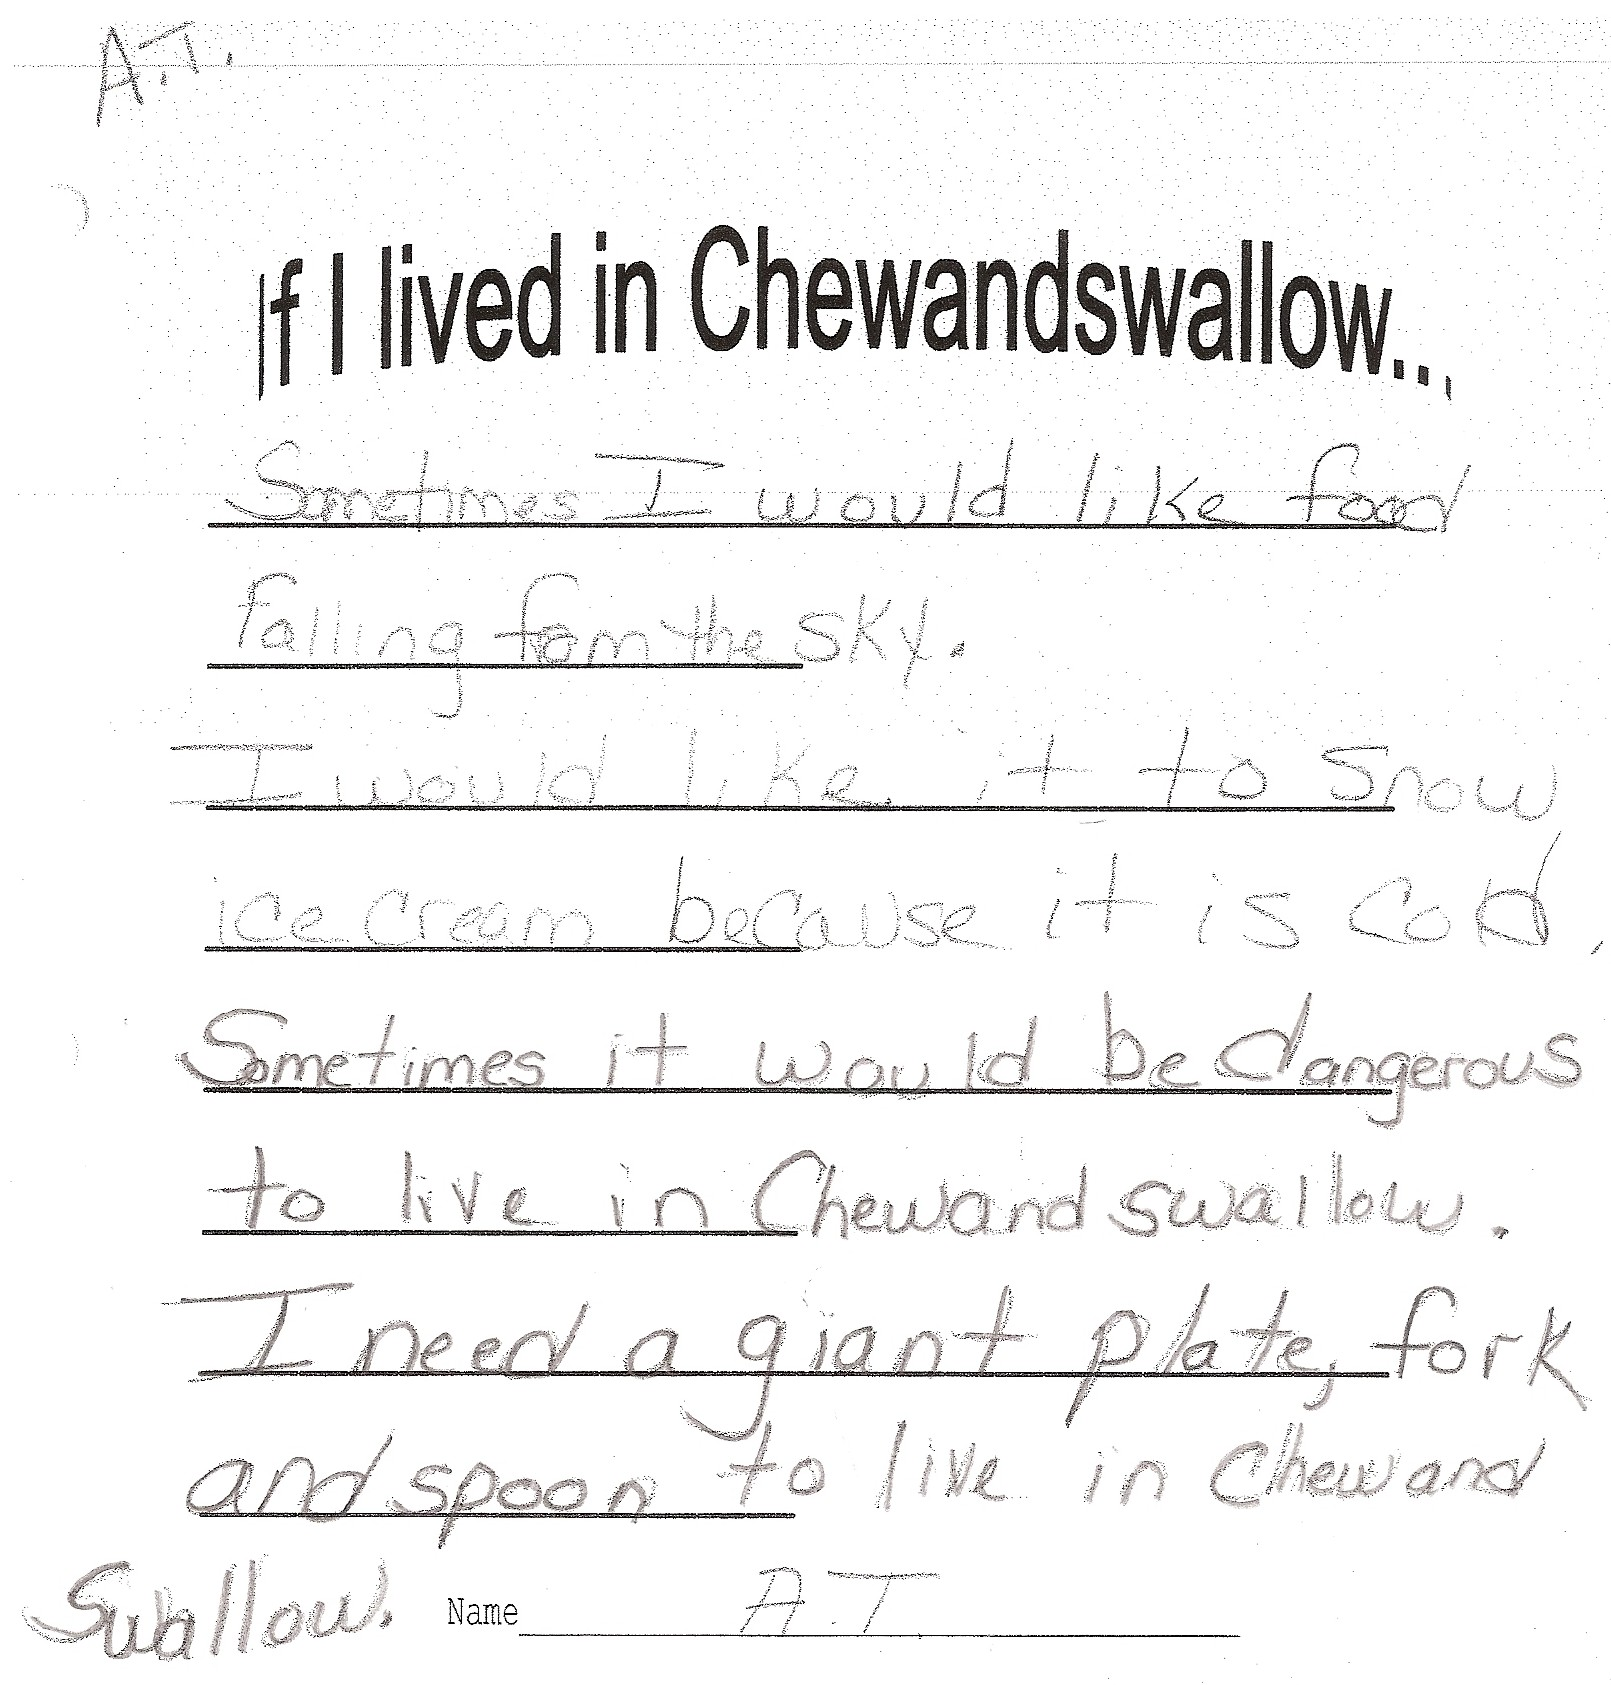 A.T.
If I lived in Chewandswallow...
Sometimes I would like food
falling fom the sky.
I would like it to snow
ice cream because it is cold.
Sometimes it would be dangerous
to live in Chewandswallow.
I need a giant plate, fork
and spoon to live in Chewand
Swallow. Name A.T